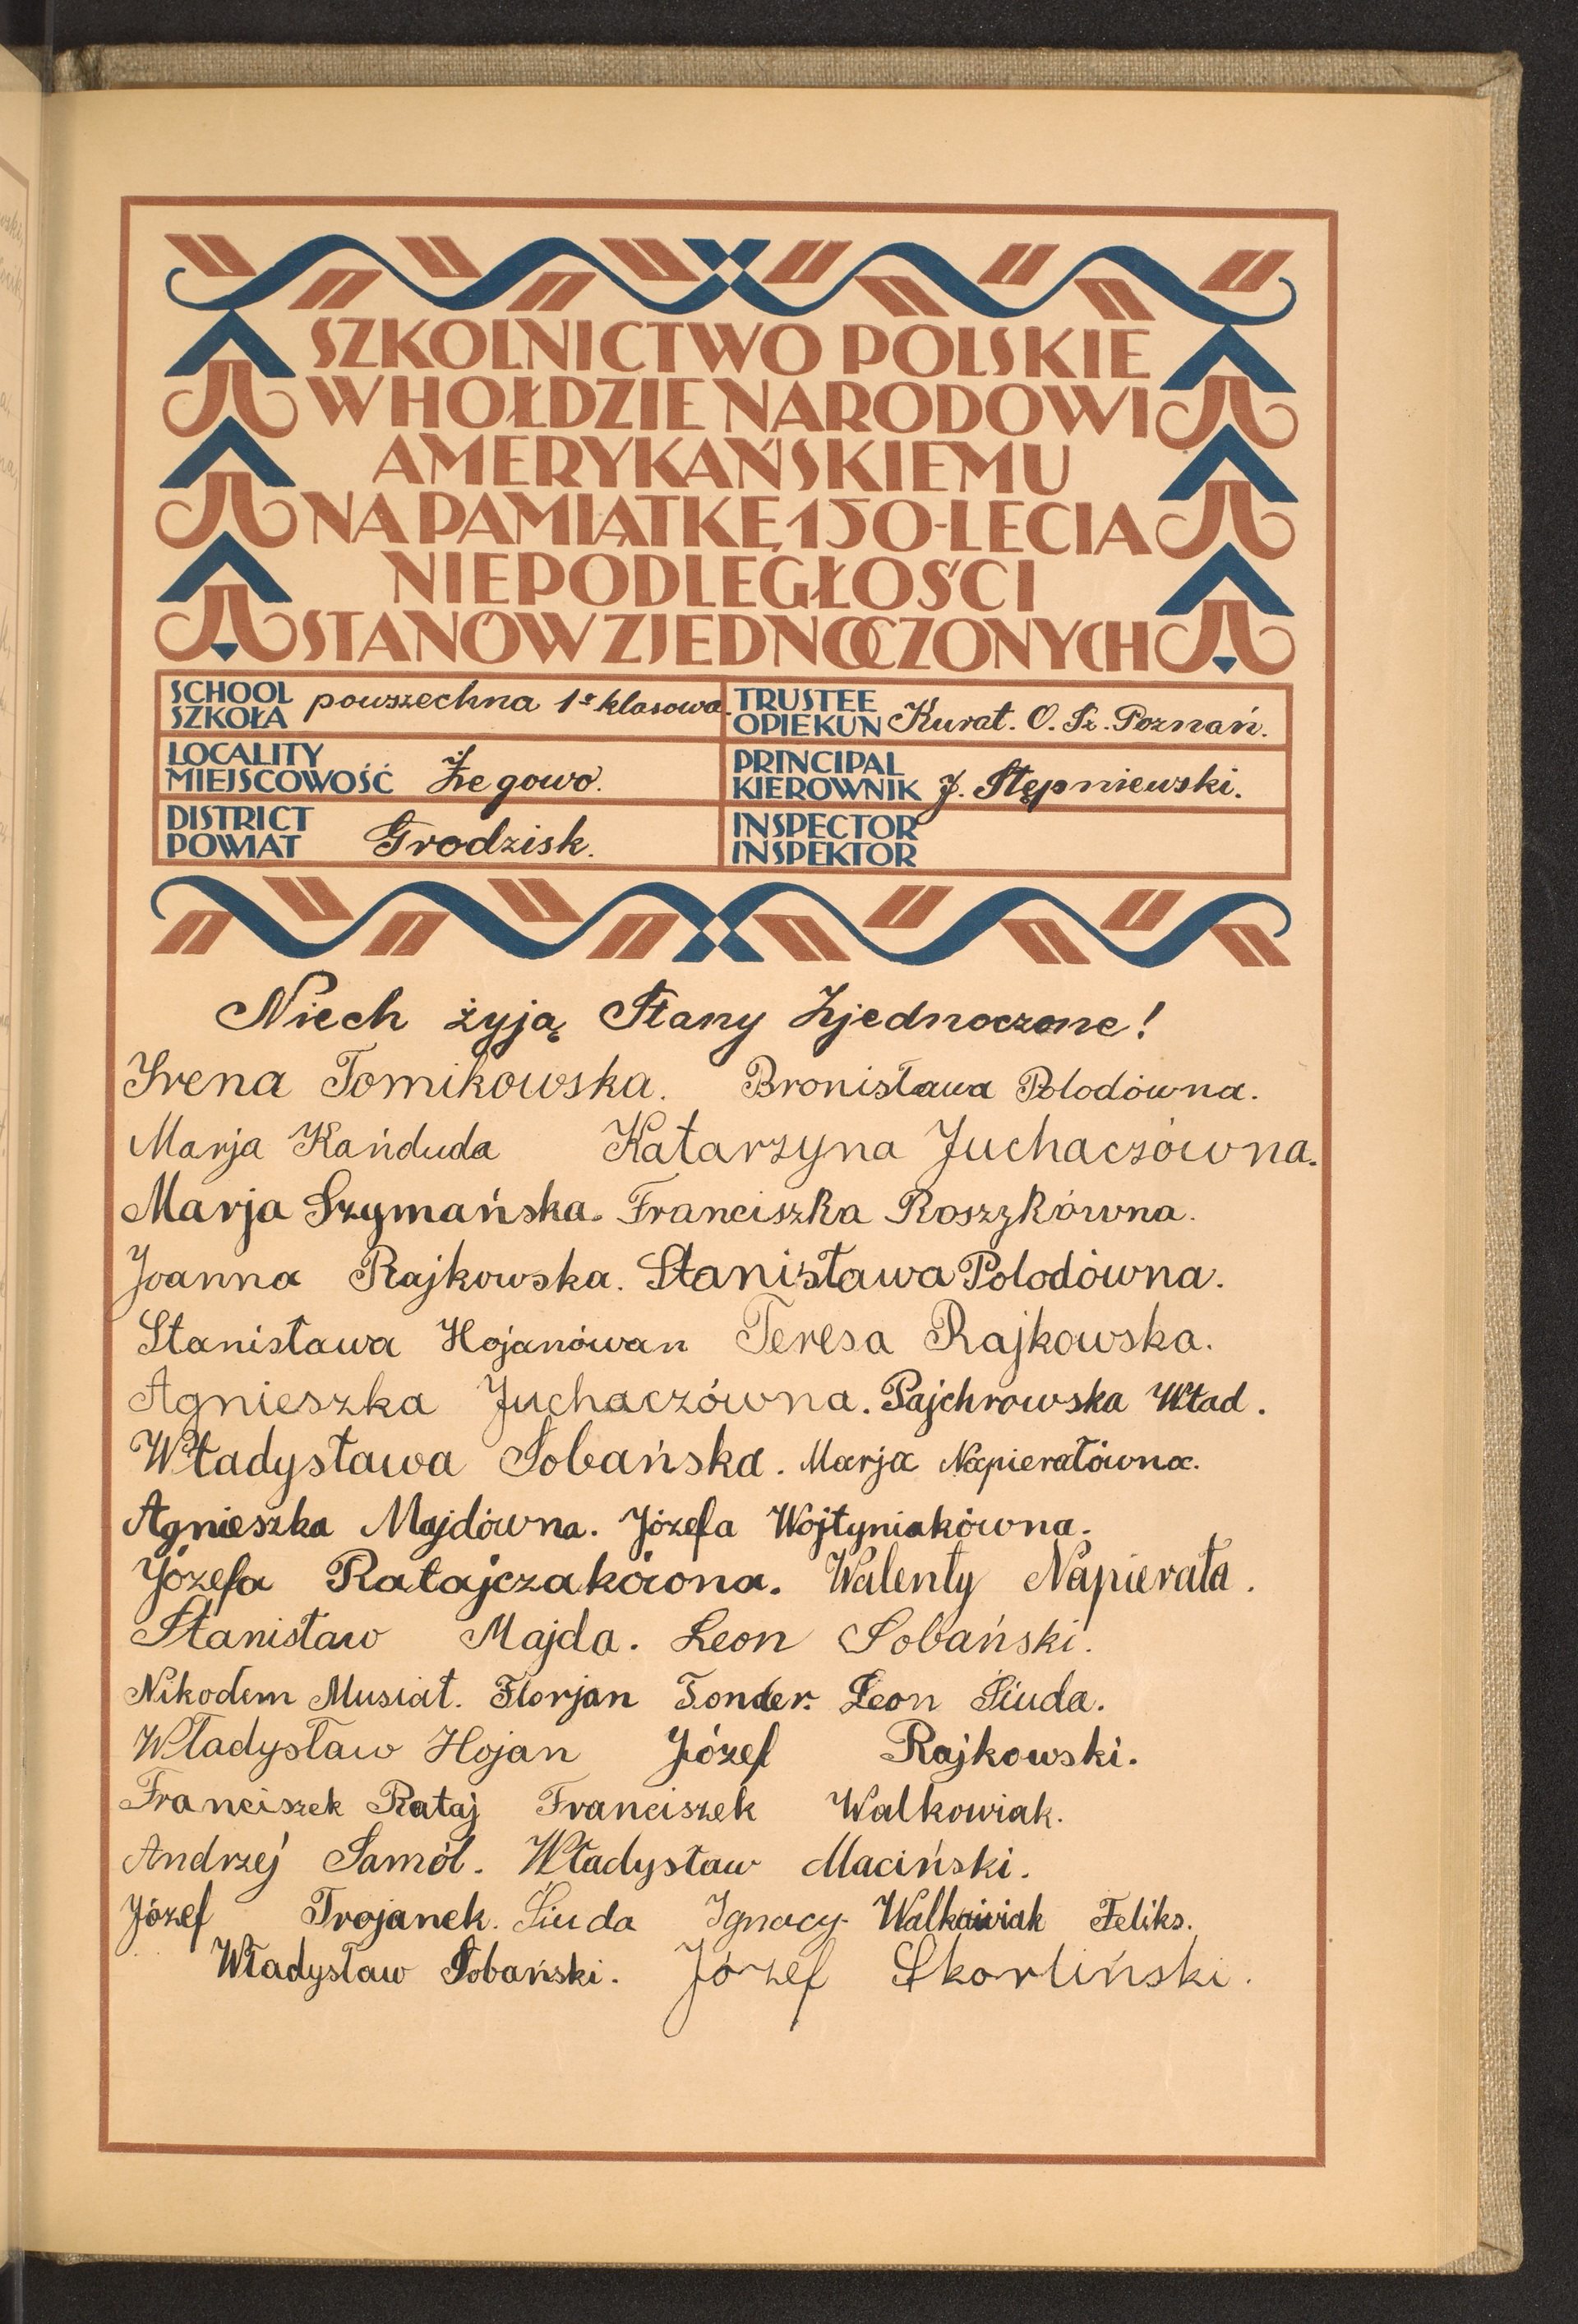 SZKOLNICTWO POLSKIE
W HOŁDZIE NARODOWI
AMERYKAŃSKIEMU
NA PAMIĄTKĘ 150-LECIA
NIEPODLEGŁOŚCI
STANÓW ZJEDNOCZONYCH
SCHOOL
SZKOŁA powszechna 1-klasowa.
TRUSTEE
OPIEKUN Kurat. O. Sz. Poznań.
LOCALITY
MIEJSCOWOŚĆ Żegowo.
PRINCIPAL
KIEROWNIK J. Stępniewski.
DISTRICT
POWIAT Grodzisk.
INSPECTOR
INSPEKTOR
Niech żyją Stany Zjednoczone!
Irena Tomikowska. Bronisława Polodówna.
Marja Kańduda Katarzyna Juchaczówna.
Marja Szymańska. Franciszka Roszykówna.
Joanna Rajkowska. Stanisława Polodówna.
Stanisława Hojanówan Teresa Rajkowska.
Agnieszka Juchaczówna. Pajchrowska Wład.
Władysława Sobańska. Marja Napierałówna.
Agnieszka Majdówna. Józefa Wojtyniakówna.
Józefa Ratajczakówna. Walenty Napierała.
Stanisław Majda. Leon Sobański.
Nikodem Musiał. Florjan Tonder. Leon Siuda.
Władysław Hojan Józef Rajkowski.
Franciszek Rataj Franciszek Walkowiak.
Andrzej Samól. Władysław Maciński.
Józef Trojanek. Siuda Ignacy Walkowiak Feliks.
Władysław Sobański. Józef Skorliński.